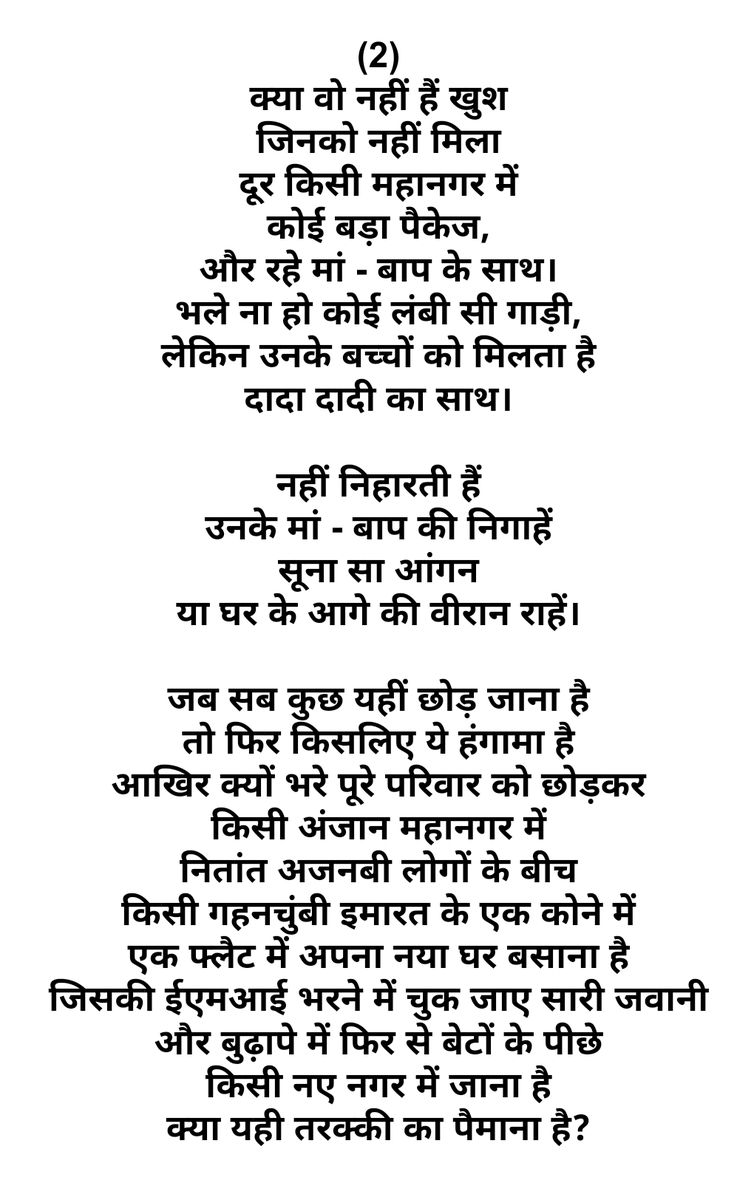 (2)
क्या वो नहीं हैं खुश
जिनको नहीं मिला
दूर किसी महानगर में
कोई बड़ा पैकेज,
और रहे मां - बाप के साथ।
भले ना हो कोई लंबी सी गाड़ी,
लेकिन उनके बच्चों को मिलता है
दादा दादी का साथ।
नहीं निहारती हैं
उनके मां - बाप की निगाहें
सूना सा आंगन
या घर के आगे की वीरान राहें।
जब सब कुछ यहीं छोड़ जाना है
तो फिर किसलिए ये हंगामा है
आखिर क्यों भरे पूरे परिवार को छोड़कर
किसी अंजान महानगर में
नितांत अजनबी लोगों के बीच
किसी गहनचुंबी इमारत के एक कोने में
एक फ्लैट में अपना नया घर बसाना है
जिसकी ईएमआई भरने में चुक जाए सारी जवानी
और बुढ़ापे में फिर से बेटों के पीछे
किसी नए नगर में जाना है
क्या यही तरक्की का पैमाना है?